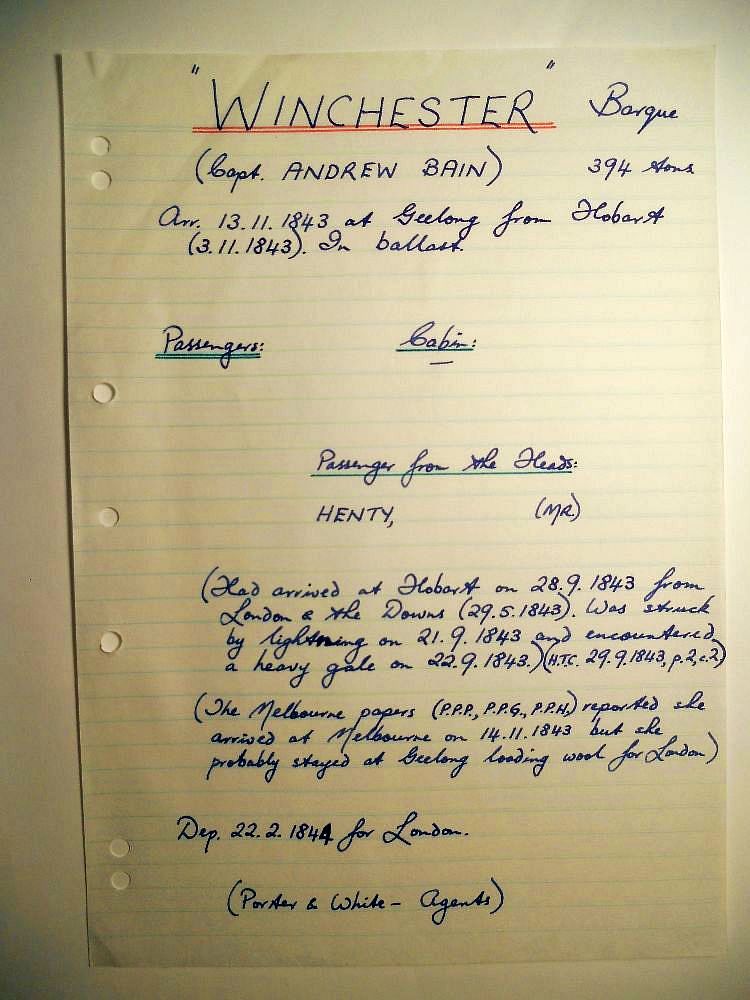 "WINCHESTER" Barque
(Capt. ANDREW BAIN) 394 tons
Arr. 13.11.1843 at Geelong from Hobart
(3.11.1843). In ballast.
Passengers: Cabin:
—
Passenger from the Heads:
HENTY, (MR.)
(Had arrived at Hobart on 28.9.1843 from
London & the Downs (29.5.1843). Was struck
by lightning on 21.9.1843 and encountered
a heavy gale on 22.9.1843.) (H.T.C. 29.9.1843, p.2, c.2)
(The Melbourne papers (P.P.P., P.P.G., P.P.H.) reported she
arrived at Melbourne on 14.11.1843 but she
probably stayed at Geelong loading wool for London)
Dep. 22.2.1844 for London.
(Porter & White - Agents)